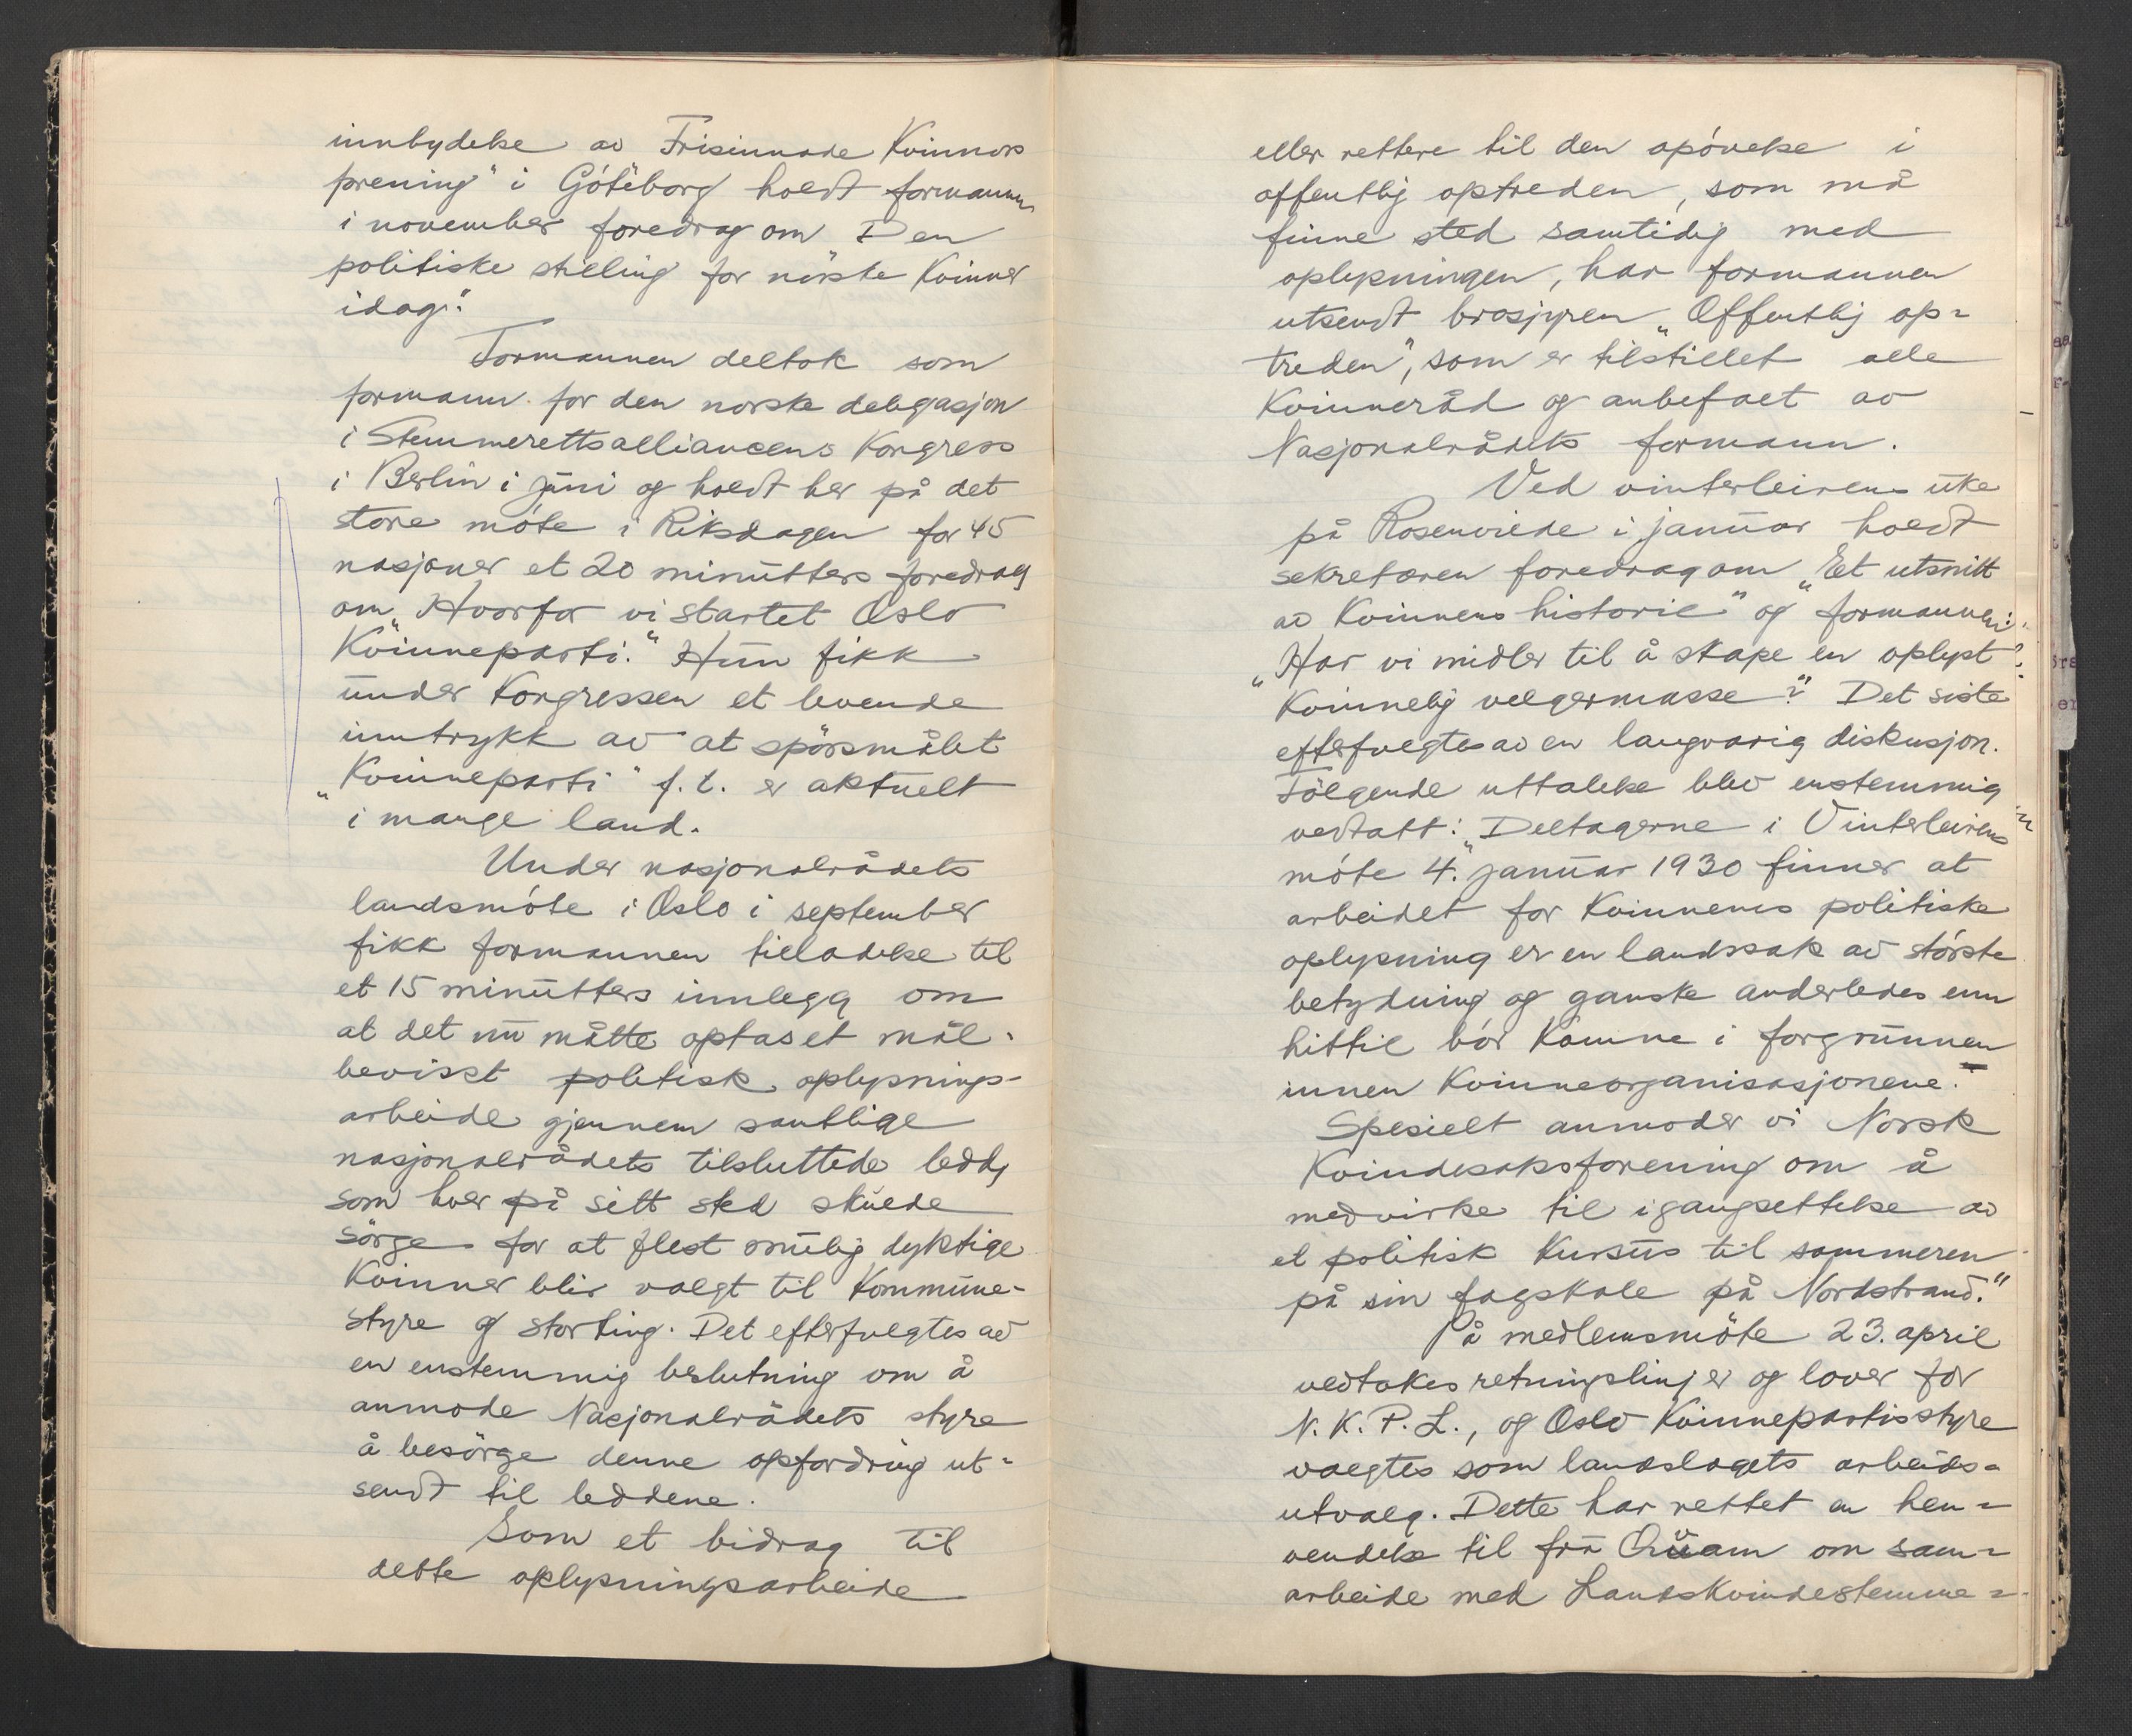 innbydelse av Frisinnade Kvinnors
förening" i Göteborg holdt formannen
i november foredrag om "Den
politiske stilling for norske Kvinner
idag."
Formannen deltok som
formann for den norske delegasjon
i Stemmerettsalliancens Kongress
i Berlin i juni og holdt her på det
store möte i Riksdagen for 45
nasjoner et 20 minutters foredrag
om „Hvorfor vi startet Oslo
Kvinneparti." Hun fikk
under Kongressen et levende
inntrykk av at spörsmålet
„Kvinneparti" f. t. er aktuelt
i mange land.
Under nasjonalrådets
landsmöte i Oslo i september
fikk formannen tillatelse til
et 15 minutters innlegg om
at det nu måtte optas et mål-
bevisst politisk oplysnings-
arbeide gjennem samtlige
nasjonalrådets tilsluttede ledd,
som hver på sitt sted skulde
sörge for at flest mulig dyktige
Kvinner blir valgt til Kommune-
styre og storting. Det efterfulgtes av
en enstemmig beslutning om å
anmode Nasjonalrådets styre
å besörge denne opfordring ut-
sendt til leddene.
Som et bidrag til
dette oplysningsarbeide
eller rettere til den opövelse i
offentlig optreden, som må
finne sted samtidig med
oplysningen, har formannen
utsendt brosjyren „Offentlig op-
treden", som er tilstillet alle
Kvinneråd og anbefalt av
Nasjonalrådets formann.
Ved vinterleirens uke
på Rosenvilde i januar holdt
sekretæren foredrag om „Et utsnitt
av Kvinnens historie" og formannen:
„Har vi midler til å skape en oplyst
Kvinnelig velgermasse?" Det siste
efterfulgtes av en langvarig diskusjon.
Fölgende uttalelse blev enstemmig
vedtatt: „Deltagerne i Vinterleirens
möte 4. januar 1930 finner at
arbeidet for Kvinnenes politiske
oplysning er en landssak av störste
betydning og ganske anderledes enn
hittil bör komme i forgrunnen
innen Kvinneorganisasjonene.
Spesielt anmoder vi Norsk
Kvindesaksforening om å
medvirke til igangsettelse av
et politisk Kursus til sommeren
på sin fagskole på Nordstrand."
På medlemsmöte 23. april
vedtokes retningslinjer og lover for
N. K. P. L., og Oslo Kvinnepartis styre
valgtes som landslagets arbeids-
utvalg. Dette har rettet en hen-
vendelse til fru Qvam om sam-
arbeide med Landskvindestemme-